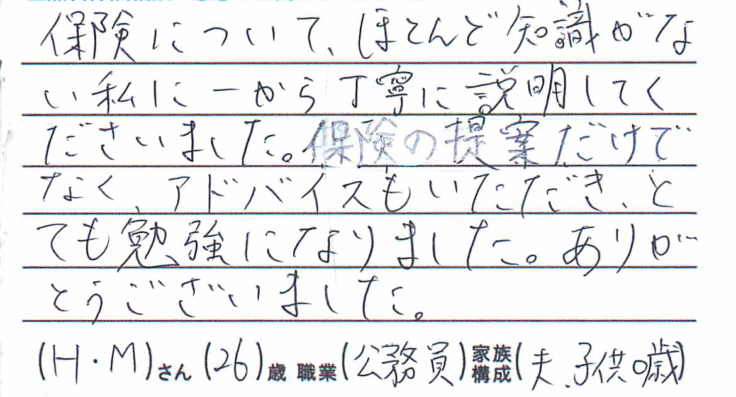 保険について、ほとんど知識がな
い私に一から丁寧に説明してく
ださいました。保険の提案だけで
なく、アドバイスもいただき、と
ても勉強になりました。ありが
とうございました。
(H・M)さん(26)歳 職業(公務員)家族構成(夫、子供0歳)